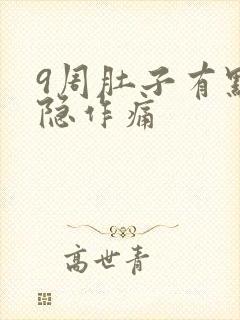 9周肚子有點
隐作痛
高世青